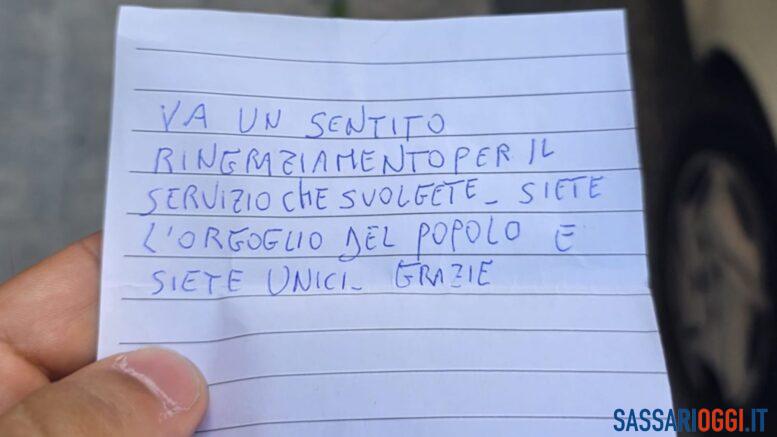 VA UN SENTITO
RINGRAZIAMENTO PER IL
SERVIZIO CHE SVOLGETE_ SIETE
L'ORGOGLIO DEL POPOLO E
SIETE UNICI_ GRAZIE
SASSARIOGGI.IT